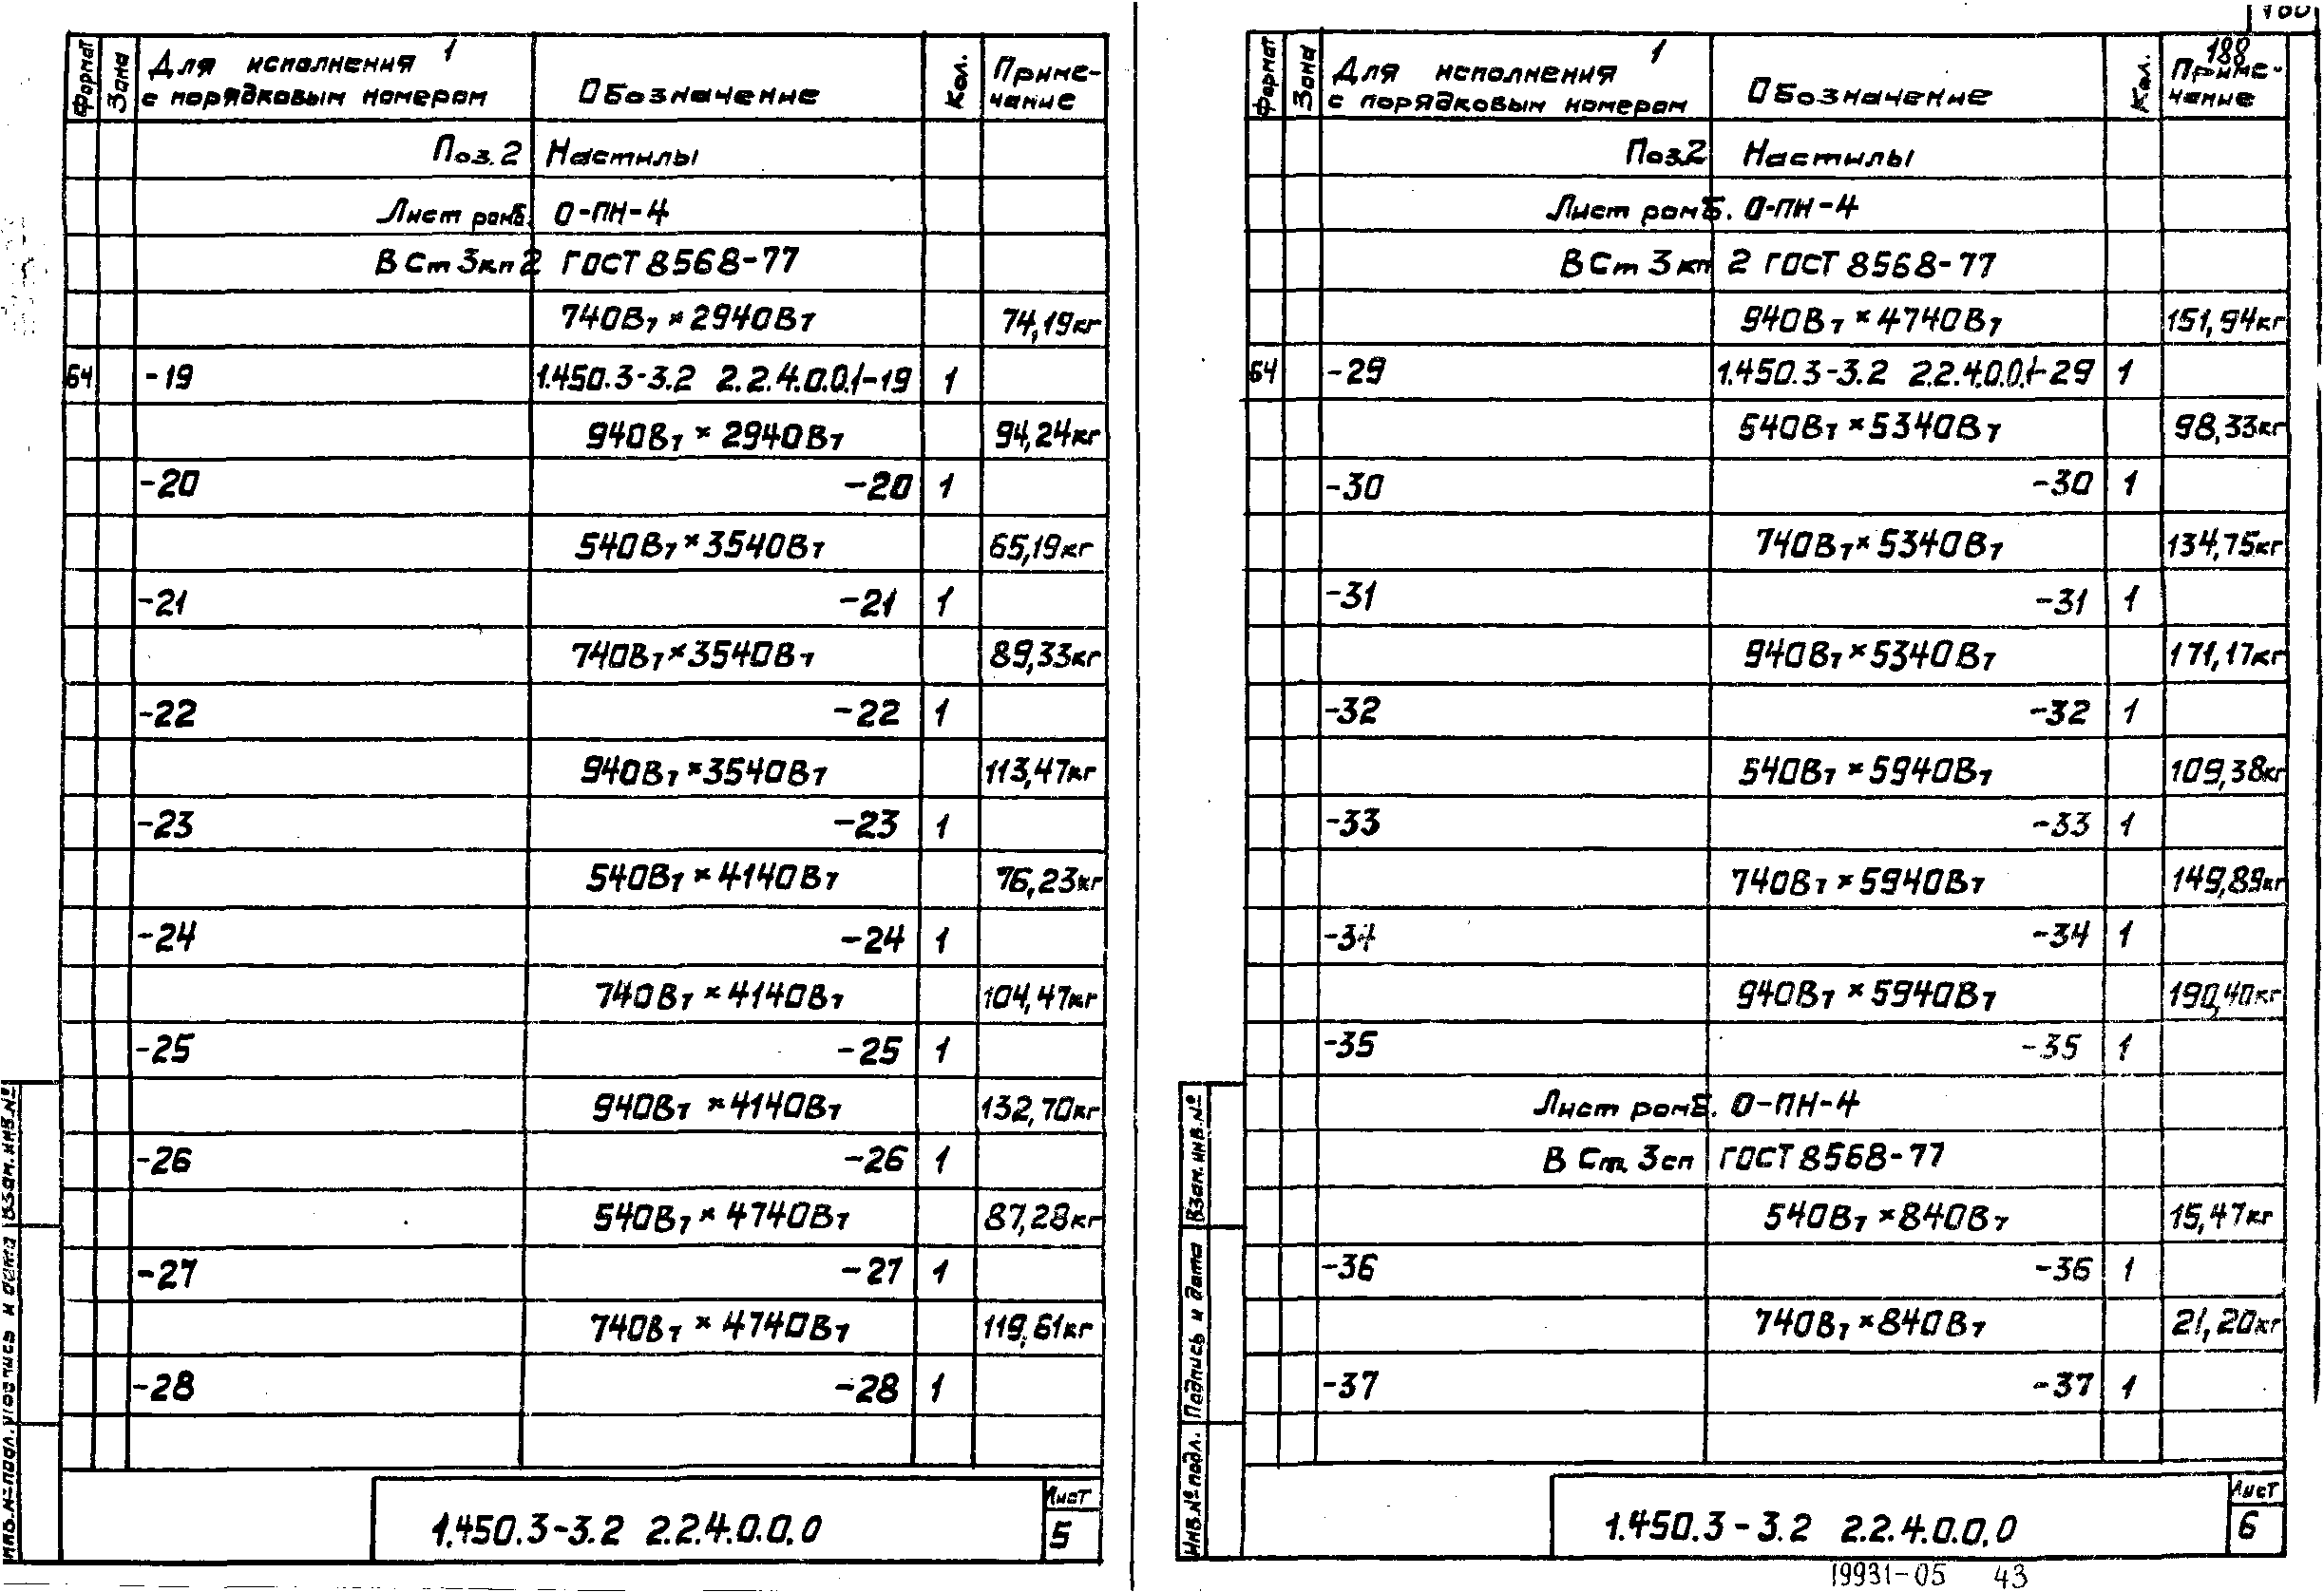 Формат Зона Для исполнения 1 с порядковым номером Обозначение Кол. Приме-чание
Поз.2 Настилы
Лист ромб. О-ПН-4
ВСт3кп2 ГОСТ 8568-77
740Вт×2940Вт 74,19кг
Б4 -19 1.450.3-3.2 2.2.4.0.0.1-19 1
940Вт×2940Вт 94,24кг
-20 -20 1
540Вт×3540Вт 65,19кг
-21 -21 1
740Вт×3540Вт 89,33кг
-22 -22 1
940Вт×3540Вт 113,47кг
-23 -23 1
540Вт×4140Вт 76,23кг
-24 -24 1
740Вт×4140Вт 104,47кг
-25 -25 1
940Вт×4140Вт 132,70кг
-26 -26 1
540Вт×4740Вт 87,28кг
-27 -27 1
740Вт×4740Вт 119,61кг
-28 -28 1
Инв.№ подл. Подпись и дата Взам.инв.№
1.450.3-3.2 2.2.4.0.0.0
Лист
5
188
Формат Зона Для исполнения 1 с порядковым номером Обозначение Кол. Приме-чание
Поз.2 Настилы
Лист ромб. О-ПН-4
ВСт3кп2 ГОСТ 8568-77
940Вт×4740Вт 151,94кг
Б4 -29 1.450.3-3.2 2.2.4.0.0.1-29 1
540Вт×5340Вт 98,33кг
-30 -30 1
740Вт×5340Вт 134,75кг
-31 -31 1
940Вт×5340Вт 171,17кг
-32 -32 1
540Вт×5940Вт 109,38кг
-33 -33 1
740Вт×5940Вт 149,89кг
-34 -34 1
940Вт×5940Вт 190,40кг
-35 -35 1
Лист ромб. О-ПН-4
В Ст.3сп ГОСТ 8568-77
540Вт×840Вт 15,47кг
-36 -36 1
740Вт×840Вт 21,20кг
-37 -37 1
Инв.№ подл. Подпись и дата Взам.инв.№
1.450.3-3.2 2.2.4.0.0.0
Лист
6
19931-05 43